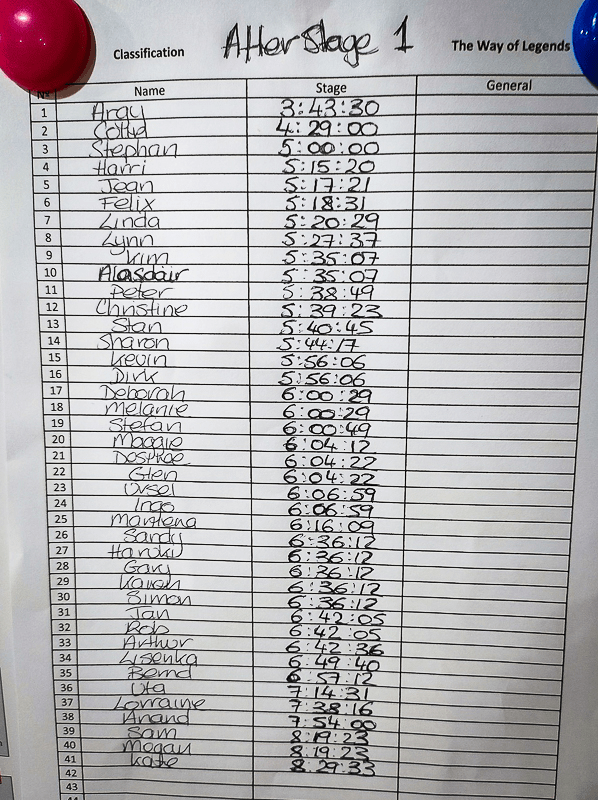 Classification After Stage 1 The Way of Legends
Nº Name Stage General
1 3:43:30
2 4:29:00
3 Stephan 5:00:00
4 Harri 5:15:20
5 Jean 5:17:21
6 Felix 5:18:31
7 Linda 5:20:29
8 Lynn 5:27:37
9 Kim 5:35:07
10 Alasdair 5:35:07
11 Peter 5:38:49
12 Christine 5:39:23
13 Stan 5:40:45
14 Sharon 5:44:17
15 Kevin 5:56:06
16 Dirk 5:56:06
17 Deborah 6:00:29
18 Melanie 6:00:29
19 Stefan 6:00:49
20 Maggie 6:04:12
21 6:04:22
22 Glen 6:04:22
23 Ursel 6:06:59
24 Ingo 6:06:59
25 Mantena 6:16:09
26 Sandy 6:36:12
27 6:36:12
28 Gary 6:36:12
29 Karen 6:36:12
30 Simon 6:36:12
31 Jan 6:42:05
32 Rob 6:42:05
33 Arthur 6:42:36
34 Lisenka 6:49:40
35 Bernd 6:57:12
36 Uta 7:14:31
37 Lorraine 7:38:16
38 Anand 7:54:00
39 Sam 8:19:23
40 Megan 8:19:23
41 Kate 8:29:33
42
43